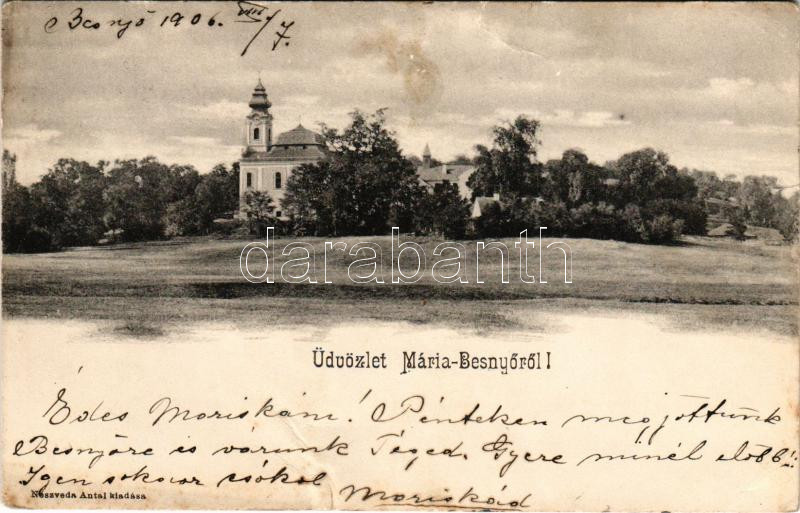 Besnyő 1906. VIII/7.
darabanth
Üdvözlet Mária-Besnyőről!
Édes Moriskám! Pénteken megjöttünk
Besnyőre és várunk Téged. Gyere minél előbb!
Igen sokszor csókol
Moriskád
Neszveda Antal kiadása